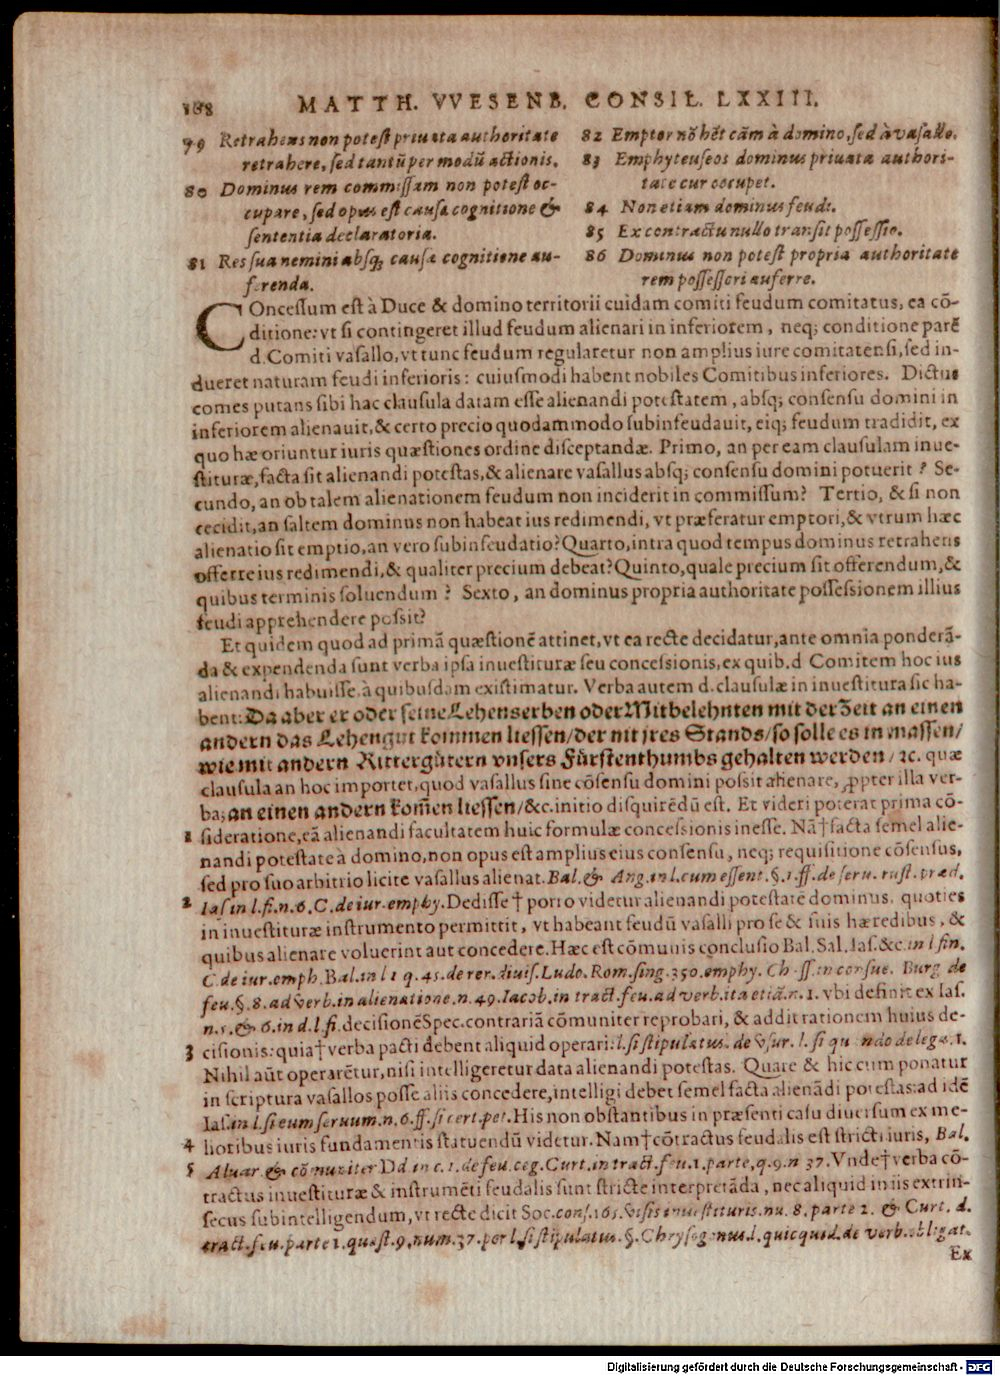 188 MATTH. VVESENB. CONSIL. LXXIII.
79 Retrahens non potest priuata authoritate
retrahere, sed tantũ per modũ actionis.
80 Dominus rem commissam non potest oc-
cupare, sed opus est causæ cognitione &
sententia declaratoria.
81 Res sua nemini absq; causæ cognitione au-
ferenda.
82 Emptor nõ hẽt cãm à domino, sed à vasallo.
83 Emphyteuseos dominus priuata authori-
tate cur occupet.
84 Non etiam dominus feudi.
85 Ex contractu nullo transit possessio.
86 Dominus non potest propria authoritate
rem possessori auferre.
COncessum est à Duce & domino territorii cuidam comiti feudum comitatus, ea cõ-
ditione: vt si contingeret illud feudum alienari in inferiorem, neq; conditione parẽ
d. Comiti vasallo, vt tunc feudum regularetur non amplius iure comitatensi, sed in-
dueret naturam feudi inferioris: cuiusmodi habent nobiles Comitibus inferiores. Dictus
comes putans sibi hac clausula datam esse alienandi potestatem, absq; consensu domini in
inferiorem alienauit, & certo precio quodammodo subinfeudauit, eiq; feudum tradidit, ex
quo hæ oriuntur iuris quæstiones ordine disceptandæ. Primo, an per eam clausulam inue-
stituræ, facta sit alienandi potestas, & alienare vasallus absq; consensu domini potuerit? Se-
cundo, an ob talem alienationem feudum non inciderit in commissum? Tertio, & si non
cecidit, an saltem dominus non habeat ius redimendi, vt præferatur emptori, & vtrum hæc
alienatio sit emptio, an vero subinfeudatio? Quarto, intra quod tempus dominus retrahens
offerre ius redimendi, & qualiter precium debeat? Quinto, quale precium sit offerendum, &
quibus terminis soluendum? Sexto, an dominus propria authoritate possessionem illius
feudi apprehendere possit?
Et quidem quod ad primã quæstionẽ attinet, vt ea recte decidatur, ante omnia ponderã-
da & expendenda sunt verba ipsa inuestituræ seu concessionis, ex quib. d Comitem hoc ius
alienandi habuisse, à quibusdam existimatur. Verba autem d. clausulæ in inuestitura sic ha-
bent: Da aber er oder seine Lehenserben oder Mitbelehnten mit der Zeit an einen
andern das Lehengut kommen liessen/ der nit jres Stands/ so solle es in massen/
wie mit andern Rittergütern vnsers Fürstenthumbs gehalten werden/ ꝛc. quæ
clausula an hoc importet, quod vasallus sine cõsensu domini possit alienare, ꝓpter illa ver-
ba; an einen andern kom̃en liessen/ &c. initio disquirẽdũ est. Et videri poterat prima cõ-
1 sideratione, eã alienandi facultatem huic formulæ concessionis inesse. Nã† facta semel alie-
nandi potestate à domino, non opus est amplius eius consensu, neq; requisitione cõsensus,
sed pro suo arbitrio licite vasallus alienat. Bal. & Ang. in l. cum essent. §. 1. ff. de seru. rust. præd.
2 Ias. in l. fi. n. 6. C. de iur. emphy. Dedisse † porro videtur alienandi potestatẽ dominus, quoties
in inuestituræ instrumento permittit, vt habeant feudũ vasalli pro se & suis hæredibus, &
quibus alienare voluerint aut concedere. Hæc est cõmunis conclusio Bal. Sal. Ias. &c. in l fin.
C. de iur. emph. Bal. in l 1 q. 45. de rer. diuis. Ludo. Rom. sing. 350. emphy. Ch ss. in consue. Burg de
feu. §. 8. ad verb. in alienatione. n. 49. Iacob. in tract. feu. ad verb. ita etiã. n. 1. vbi definit ex Ias.
n. 5. & 6. in d. l. fi. decisionẽ Spec. contrariã cõmuniter reprobari, & addit rationem huius de-
3 cisionis: quia† verba pacti debent aliquid operari: l. si stipulatus. de vsur. l. si quando de lega. 1.
Nihil aũt operarẽtur, nisi intelligeretur data alienandi potestas. Quare & hic cum ponatur
in scriptura vasallos posse aliis concedere, intelligi debet semel facta alienãdi potestas: ad idẽ
Ias. in l. si eum seruum. n. 6. ff. si cert. pet. His non obstantibus in præsenti casu diuersum ex me-
4 lioribus iuris fundamentis statuendũ videtur. Nam† cõtractus feudalis est stricti iuris, Bal.
5 Aluar. & cõmuniter Dd in c. 1. de feu. cog. Curt. in tract. feu. 1. parte, q. 9. n 37. Vnde† verba cõ-
tractus inuestituræ & instrumẽti feudalis sunt stricte interpretãda, nec aliquid in iis extrin-
secus subintelligendum, vt recte dicit Soc. cons. 165. visis inuestituris. nu. 8. parte 2. & Curt. d.
tract. feu. parte 1. quæst. 9. num. 37. per l. si stipulatus. §. Chrysogonus. l. quicquid. de verb. obligat.
Ex
Digitalisierung gefördert durch die Deutsche Forschungsgemeinschaft - DFG